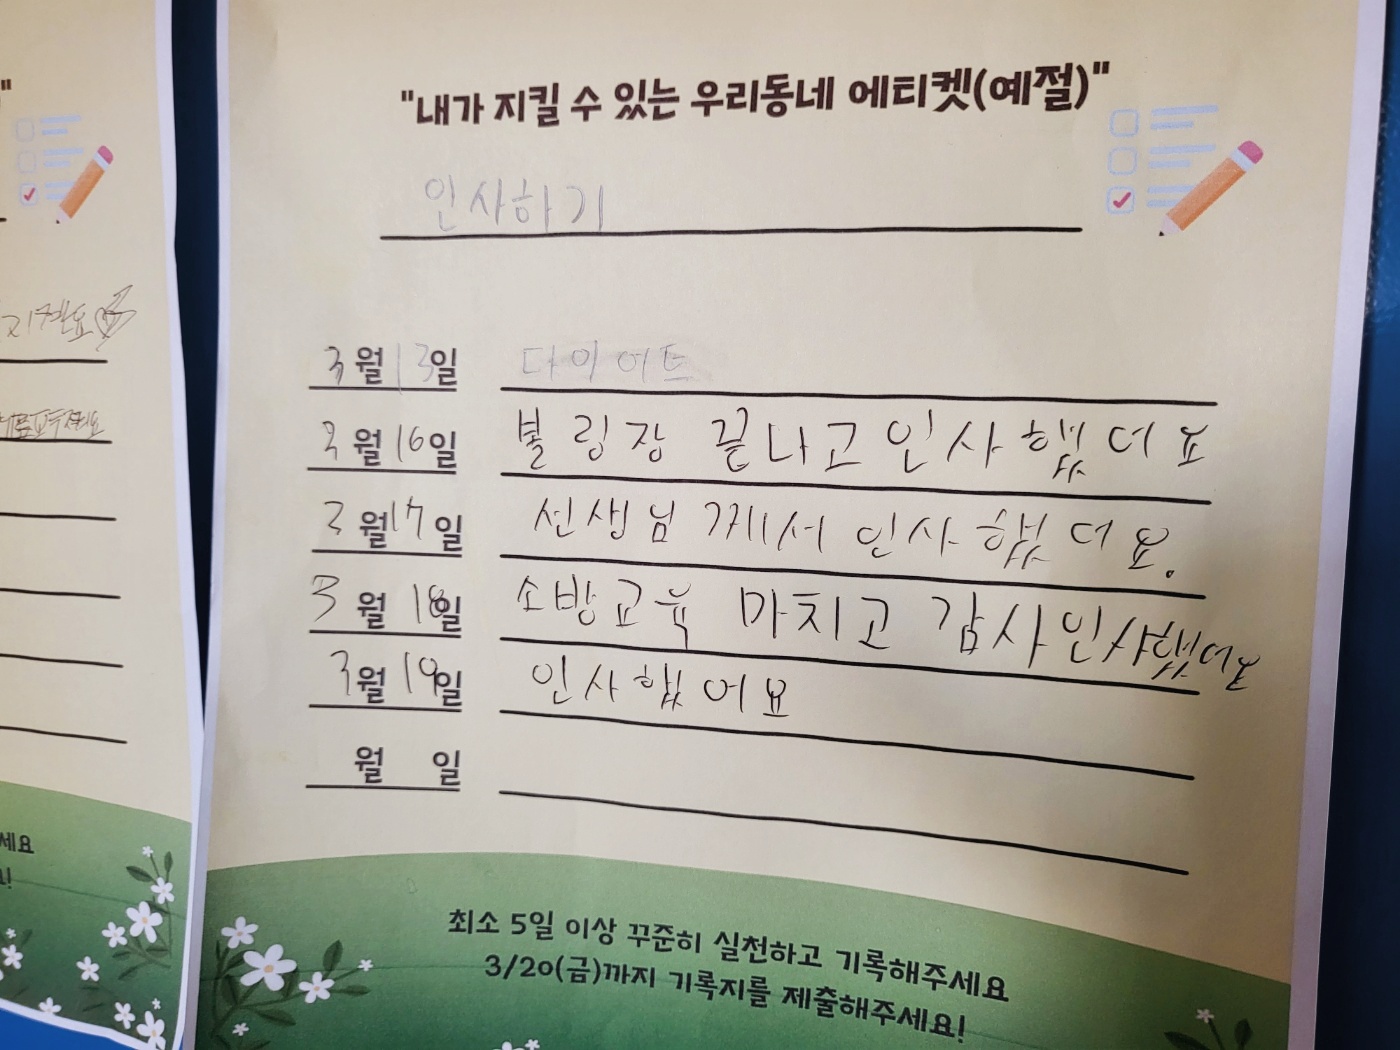 "내가 지킬 수 있는 우리동네 에티켓(예절)"
인사하기
3월 13일 다이어트
3월 16일 볼링장 끝나고 인사했더요
3월 17일 선생님 께서 인사했더요.
3월 18일 소방교육 마치고 감사인사했더요
3월 19일 인사했어요
월 일
최소 5일 이상 꾸준히 실천하고 기록해주세요
3/20(금)까지 기록지를 제출해주세요!
세요